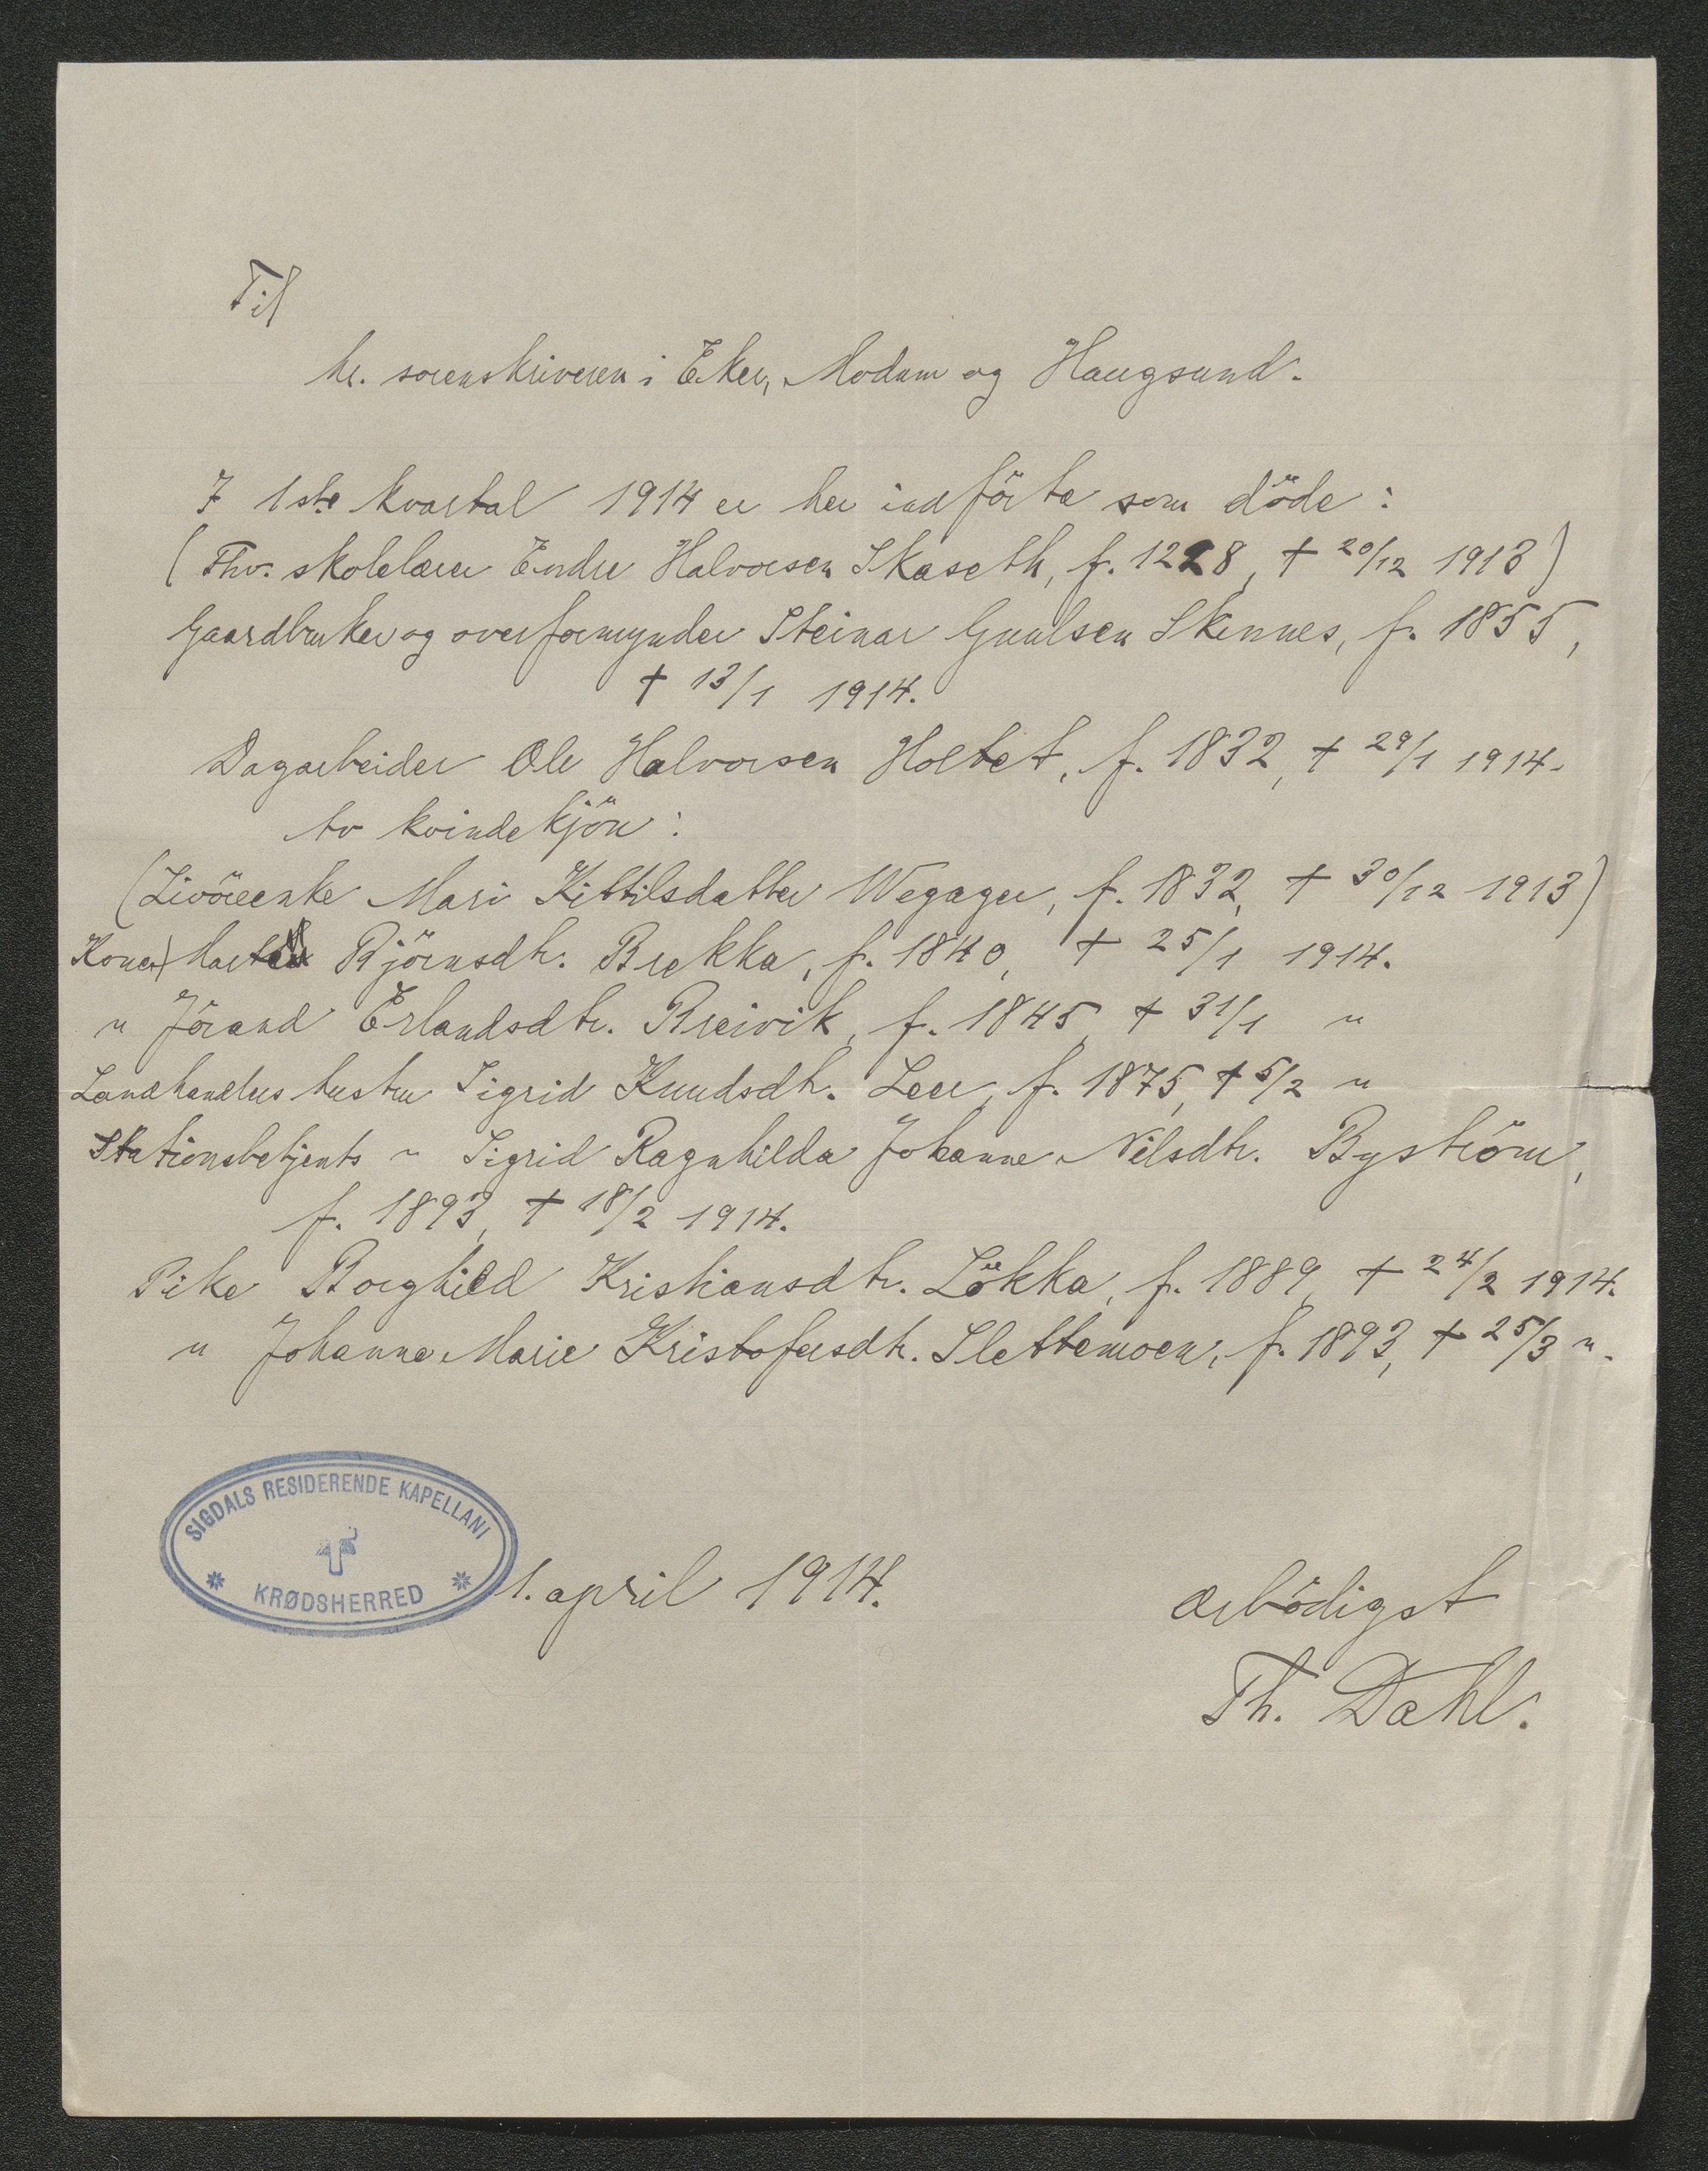 Til
hr. sorenskriveren i Eker, Modum og Haugsund.
I 1ste kvartal 1914 er her indförte som döde:
(Fhv. skolelærer Endre Halvorsen Skaseth, f. 1228, † 20/12 1913)
Gaardbruker og overformynder Steinar Gunulsen Skinnes, f. 1855,
† 13/1 1914.
Dagarbeider Ole Halvorsen Holtet, f. 1832, † 29/1 1914.
av kvindekjön:
(Livöreenke Mari Kittilsdatter Wegager, f. 1832, † 30/12 1913)
Kone Björnsdtr. Brekka, f. 1840, † 25/1 1914.
" Jörand Erlandsdtr. Breivik, f. 1845, † 31/1 "
Landhandlers hustru Sigrid Knudsdtr. Leer, f. 1875, † 5/2 "
Stationsbetjents " Sigrid Ragnhilda Johanne Nilsdtr. Byström,
f. 1893, † 18/2 1914.
Pike Borghild Kristiansdtr. Lökka, f. 1889, † 24/2 1914.
" Johanne Marie Kristofersdtr. Slettemoen, f. 1893, † 25/3 ".
SIGDALS RESIDERENDE KAPELLANI
KRØDSHERRED
1. april 1914.
ærbödigst
Th. Dahl.